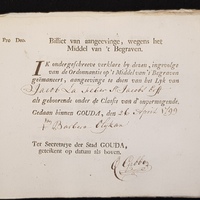 Pro Deo.
Billiet van aangeevinge, wegens het
Middel van 't Begraven.
IK ondergeschreeve verklare by dezen, ingevolge
van de Ordonnantie op 't Middel van 't Begraven
geëmaneert, aangeevinge te doen van het Lyk van
Jacob
als gehoorende onder de Classis van d' onvermogende.
Gedaan binnen GOUDA, den 26 April 1799
Barbera
Ter Secretarye der Stad GOUDA,
geteikent op datum als boven.